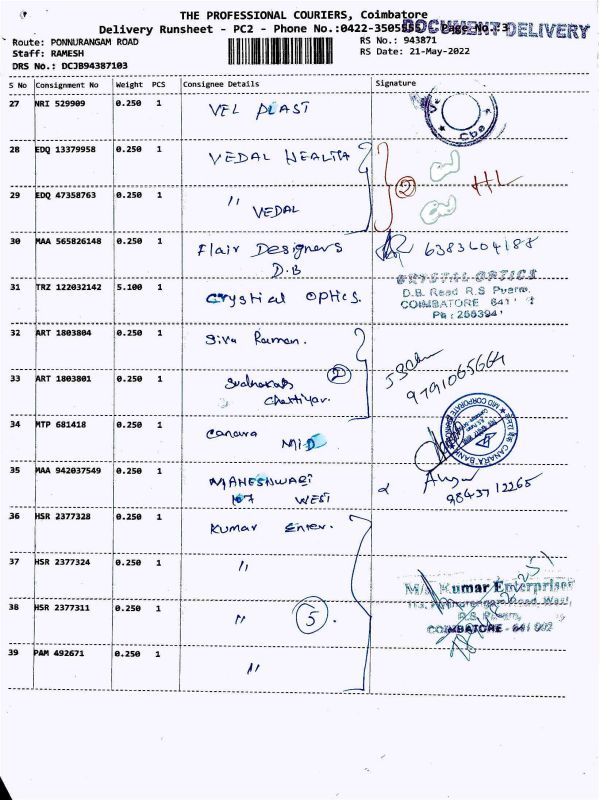 THE PROFESSIONAL COURIERS, Coimbatore
Delivery Runsheet - PC2 - Phone No.:0422-3505555 Page No.: 3
DOCUMENT DELIVERY
Route: PONNURANGAM ROAD
Staff: RAMESH
DRS No.: DCJB94387103
RS No.: 943871
RS Date: 21-May-2022
S No Consignment No Weight PCS Consignee Details Signature
27 NRI 529909 0.250 1 VEL PLAST
Cbe
28 EDQ 13379958 0.250 1 VEDAL HEALTH
2 HL
29 EDQ 47358763 0.250 1 " VEDAL
30 MAA 565826148 0.250 1 Flair Designers
D.B
6383604188
31 TRZ 122032142 5.100 1 Crystial Optics.
CRYSTAL OPTICS
D.B. Road R.S Puram,
COIMBATORE 641
Ph: 255394
32 ART 1803804 0.250 1 Siva Raman.
2
33 ART 1803801 0.250 1
Chettiyar.
9791065664
34 MTP 681418 0.250 1 Canara
MID
CANARA BANK
MID CORPORATE
35 MAA 942037549 0.250 1 MAHESHWARI
107 WEST
9843712265
36 HSR 2377328 0.250 1 Kumar Enter.
37 HSR 2377324 0.250 1 "
M/s. Kumar Enterprises
38 HSR 2377311 0.250 1 " 5.
113, Ponnurangam Road, West,
R.S. Puram,
COIMBATORE - 641 002
39 PAM 492671 0.250 1 "